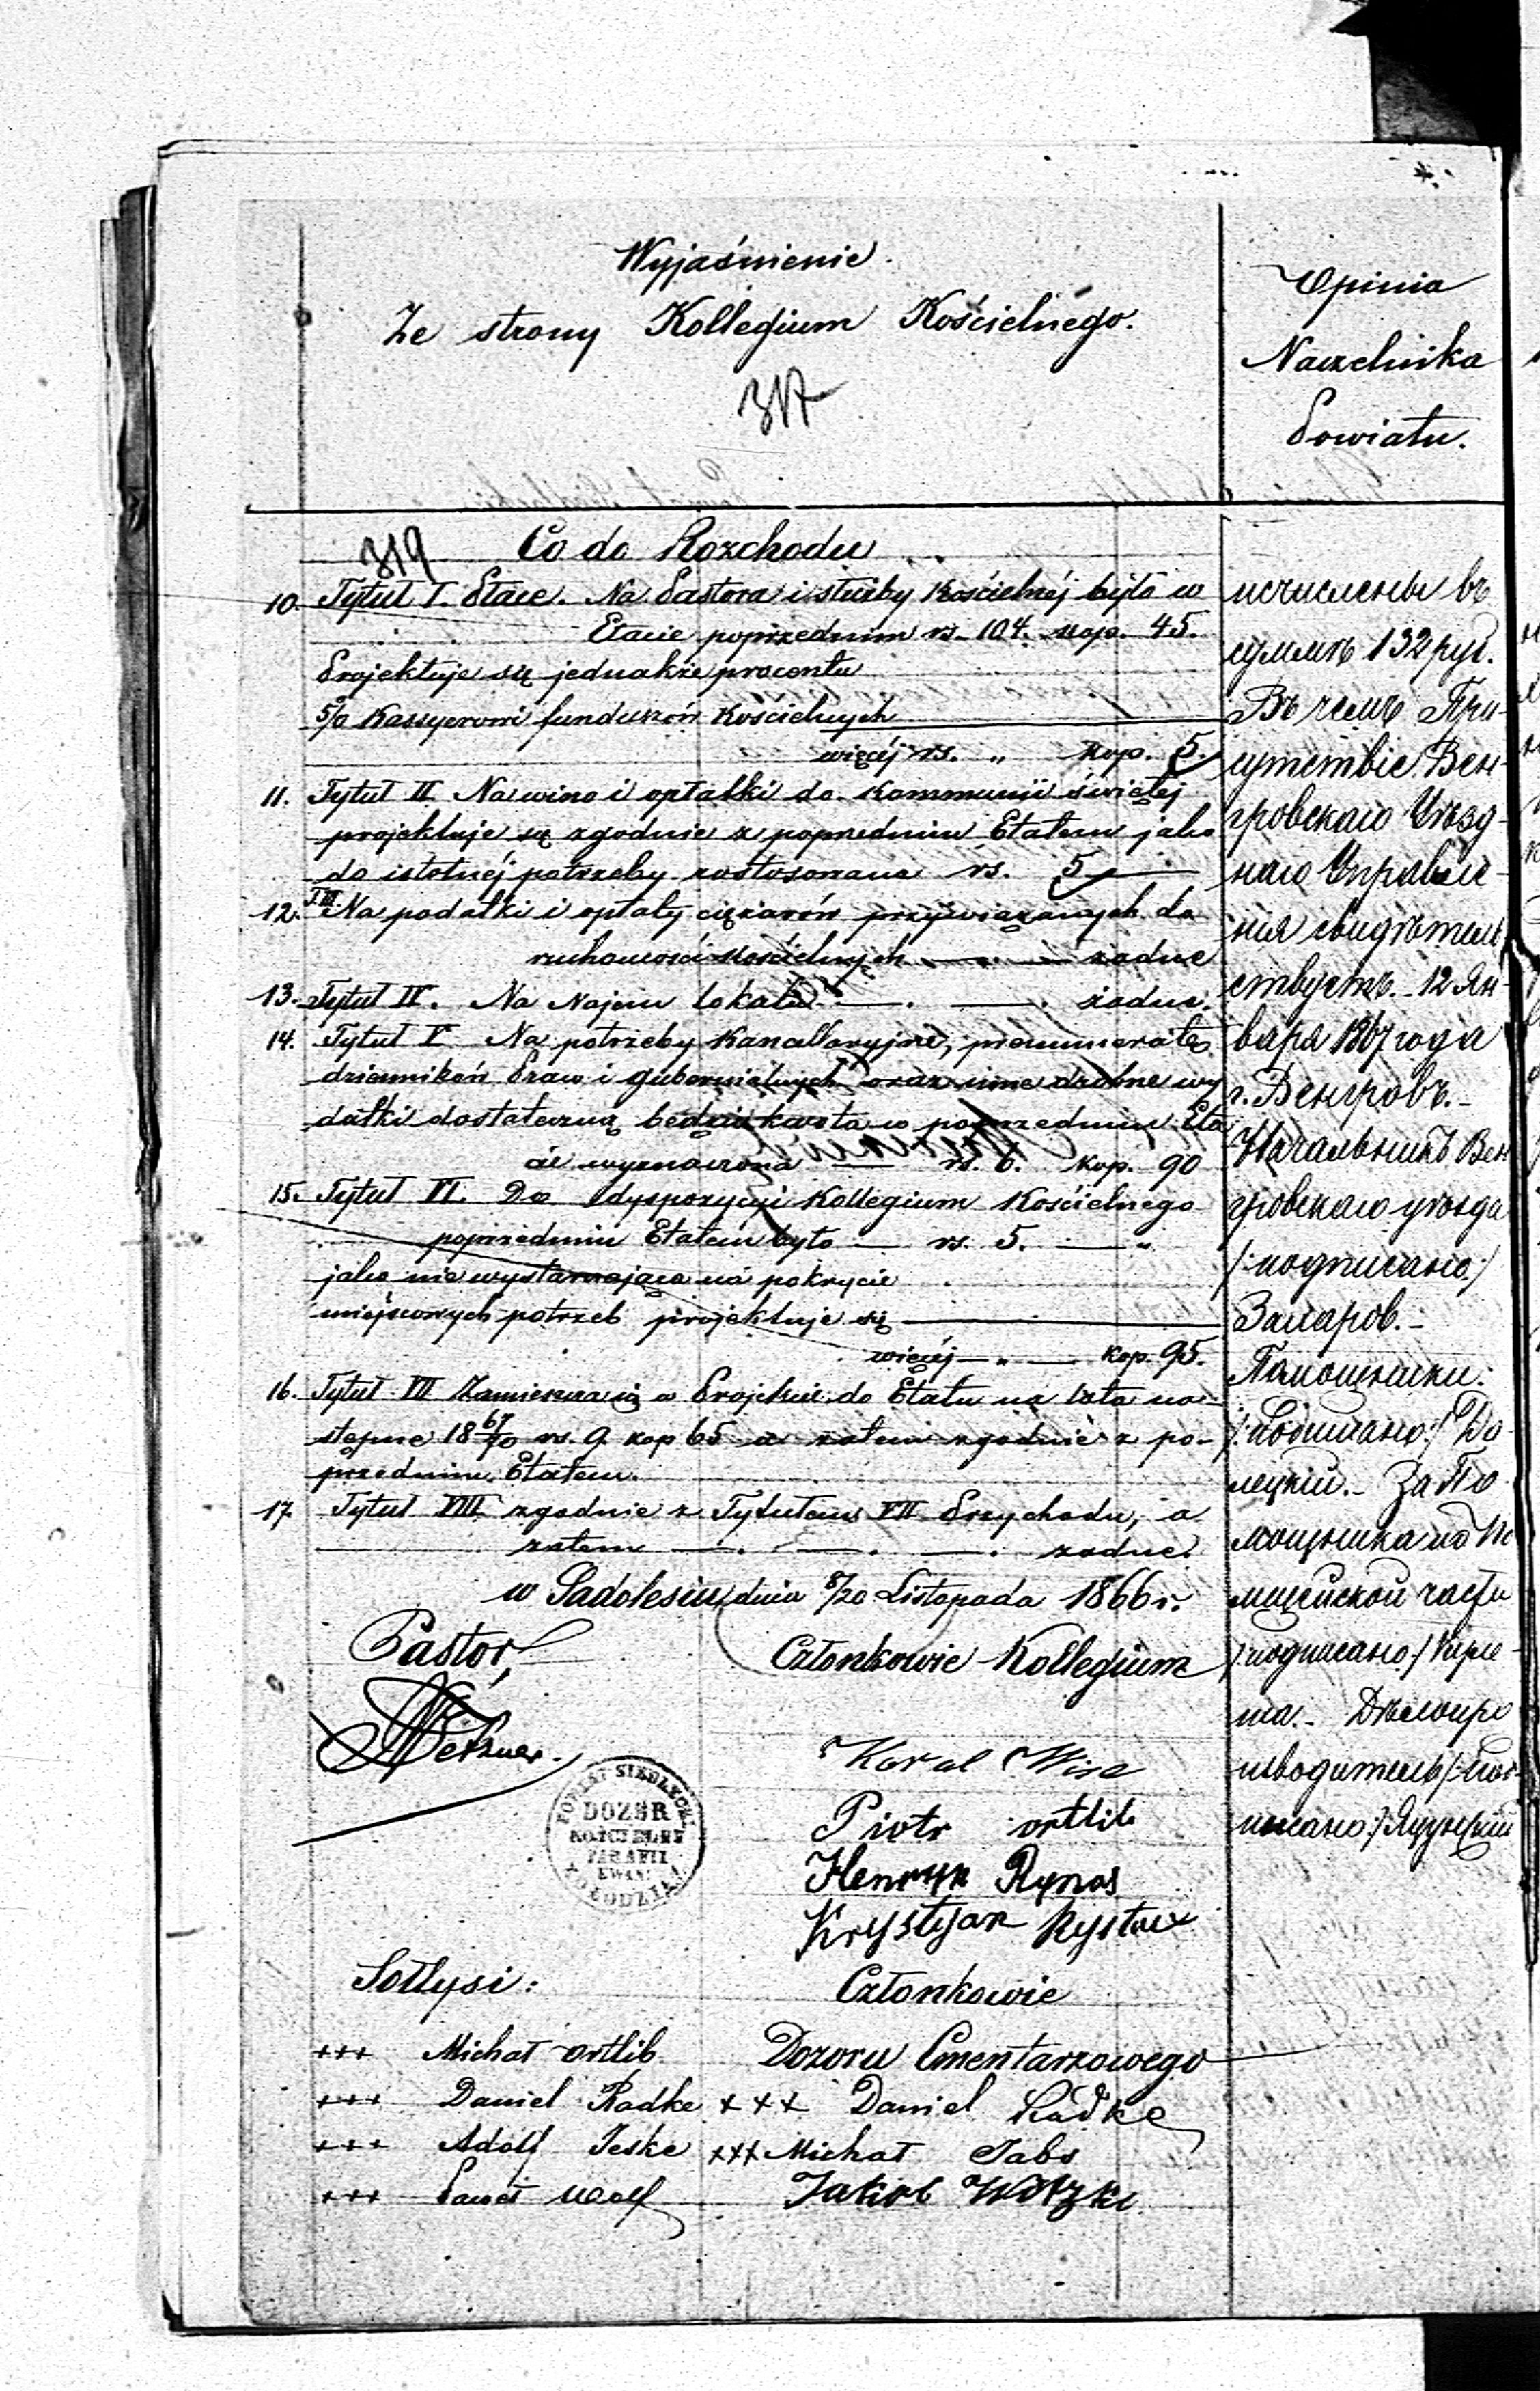 Wyjaśnienie.
Ze strony Kollegium Kościelnego.
317
Opinia
Naczelnika
Powiatu.
319 Co do Rozchodu
10. Tytuł I. Etace. Na Pastora i służby Kościelnéj było w
Etacie poprzednim rs. 104. kop. 45.
Projektuje się jednakże procentu
5/0 Kassyerowi funduszów Kościelnych
więcéj rs. " kop. 5.
11. Tytuł II Na wino i opłatki do Kommunii świętéj
projektuje się zgodnie z poprzednim Etatem jako
do istotnéj potrzeby zastosowane rs. 5
12. T III Na podatki i opłaty ciężarów przywiązanych do
ruchomości kościelnych — . — żadne
13. Tytuł IV. Na Najem lokalu — . — . żadne.
14. Tytuł V Na potrzeby Kancellaryjne, prenumeratę
dzienników Praw i gubernialnych oraz inne drobne wy
datki dostateczną będzie kwota w poprzednim Eta
cie wyznaczona — rs. 6. kop. 90
15. Tytuł VI. Do dyspozycyi Kollegium Kościelnego
poprzednim Etatem było — rs. 5. — "
jako nie wystarczająca na pokrycie
miejscowych potrzeb projektuje się
więcéj — " — kop. 95.
16. Tytuł VII Zamieszcza się w Projekcie do Etatu na lata na-
stępne 18 67/70 rs. 9 kop 65 a zatem zgodnie z po-
przednim Etatem.
17. Tytuł VIII zgodnie z Tytułem VII Przychodu, a
zatem — . — . — . żadne.
w Sadolesiu dnia 8/20 Listopada 1866 r.
Pastor,
Członkowie Kollegium
Karol Wise
Piotr ortlib
Henryk Rynas
Krystyan
POWIAT SIEDLECKI
DOZÓR
KOŚCIELNY
PARAFII
EWAN:
Sołtysi:
Członkowie
Dozoru Cmentarzowego
+++ Michał ortlib
+++ Daniel Radke
+++ Daniel Radke
+++ Adolf Jeske
+++ Michał Jabs
+++ Paweł Wolf
Jakób Witzke
исчислены въ
суммѣ 132 руб.
Въ чемъ При-
сутствіе Вен-
гровскаго Уѣзд-
наго Управле-
нія свидѣтель
ствуетъ. 12 Ян-
варя 1867 года
г. Венгровъ.
Начальникъ Вен
гровскаго уѣзда
/:подписано:/
Помощники:
/:подписано:/ До-
лецкій. За По
мощника по По
лицейской части
/:подписано:/
Дѣлопро
изводитель /:под-
писано:/